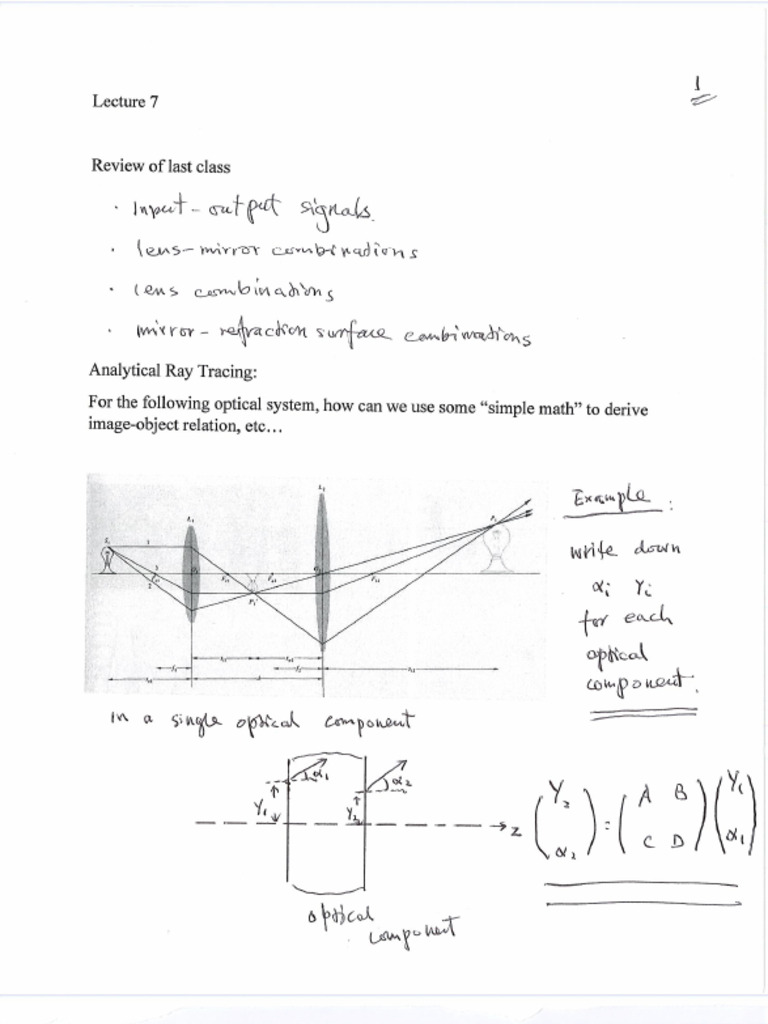 1
Lecture 7
Review of last class
· Input - output signals.
· lens - mirror combinations
· lens combinations
· mirror - refraction surface combinations
Analytical Ray Tracing:
For the following optical system, how can we use some “simple math” to derive
image-object relation, etc…
Example :
write down
αi Yi
for each
optical
component.
L1
L2
1
3
2
d
In a single optical component
α1
α2
Y1
Y2
z
(Y2 α2) = (A B C D) (Y1 α1)
optical
component